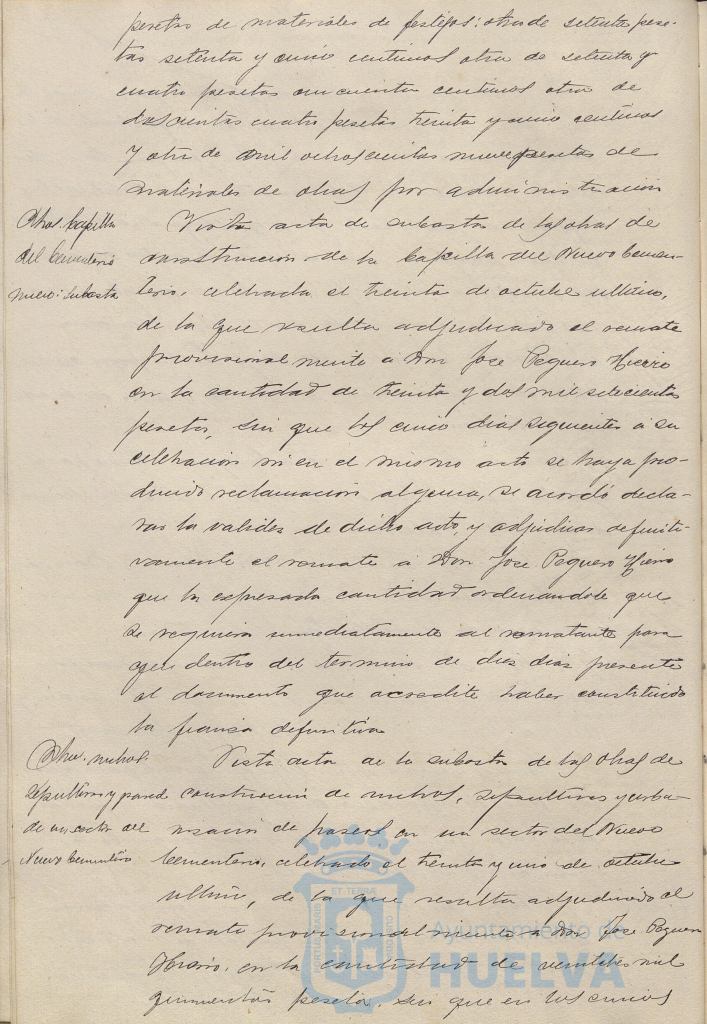 pesetas de materiales de festejos: otra de setenta pese-
tas setenta y cinco centimos otra de setenta y
cuatro pesetas cincuenta centimos otra de
doscientas cuatro pesetas treinta y cinco centimos
y otra de mil ochocientas nueve pesetas de
materiales de obras por administracion
Obras. Capilla
del Cementerio
nuevo: subasta
Vista acta de subasta de las obras de
construccion de la Capilla del Nuevo Cemen-
terio, celebrada el treinta de octubre ultimo,
de la que resulta adjudicado el remate
provisionalmente a Don Jose Peguero Hierro
en la cantidad de treinta y dos mil setecientas
pesetas, sin que los cinco dias siguientes a su
celebracion ni en el mismo acto se haya pro-
ducido reclamacion alguna, se acordó decla-
rar la validez de dicho acto, y adjudicar definiti-
vamente el remate a Don Jose Peguero Hierro
que la expresada cantidad ordenandole que
se requiera inmediatamente al rematante para
que dentro del termino de diez dias presente
el documento que acredite haber constituido
la fianza definitiva
Obras. nichos.
sepulturas y pared
de un sector del
Nuevo Cementerio
Vista acta de la subasta de las obras de
construccion de nichos, sepulturas y urba-
nizacion de paseos en un sector del Nuevo
Cementerio, celebrado el treinta y uno de octubre
ultimo, de la que resulta adjudicado el
remate provisionalmente a Don Jose Peguero
Hierro, en la cantidad de veintitres mil
quinientas pesetas, sin que en los cinco
Ayuntamiento de
HUELVA